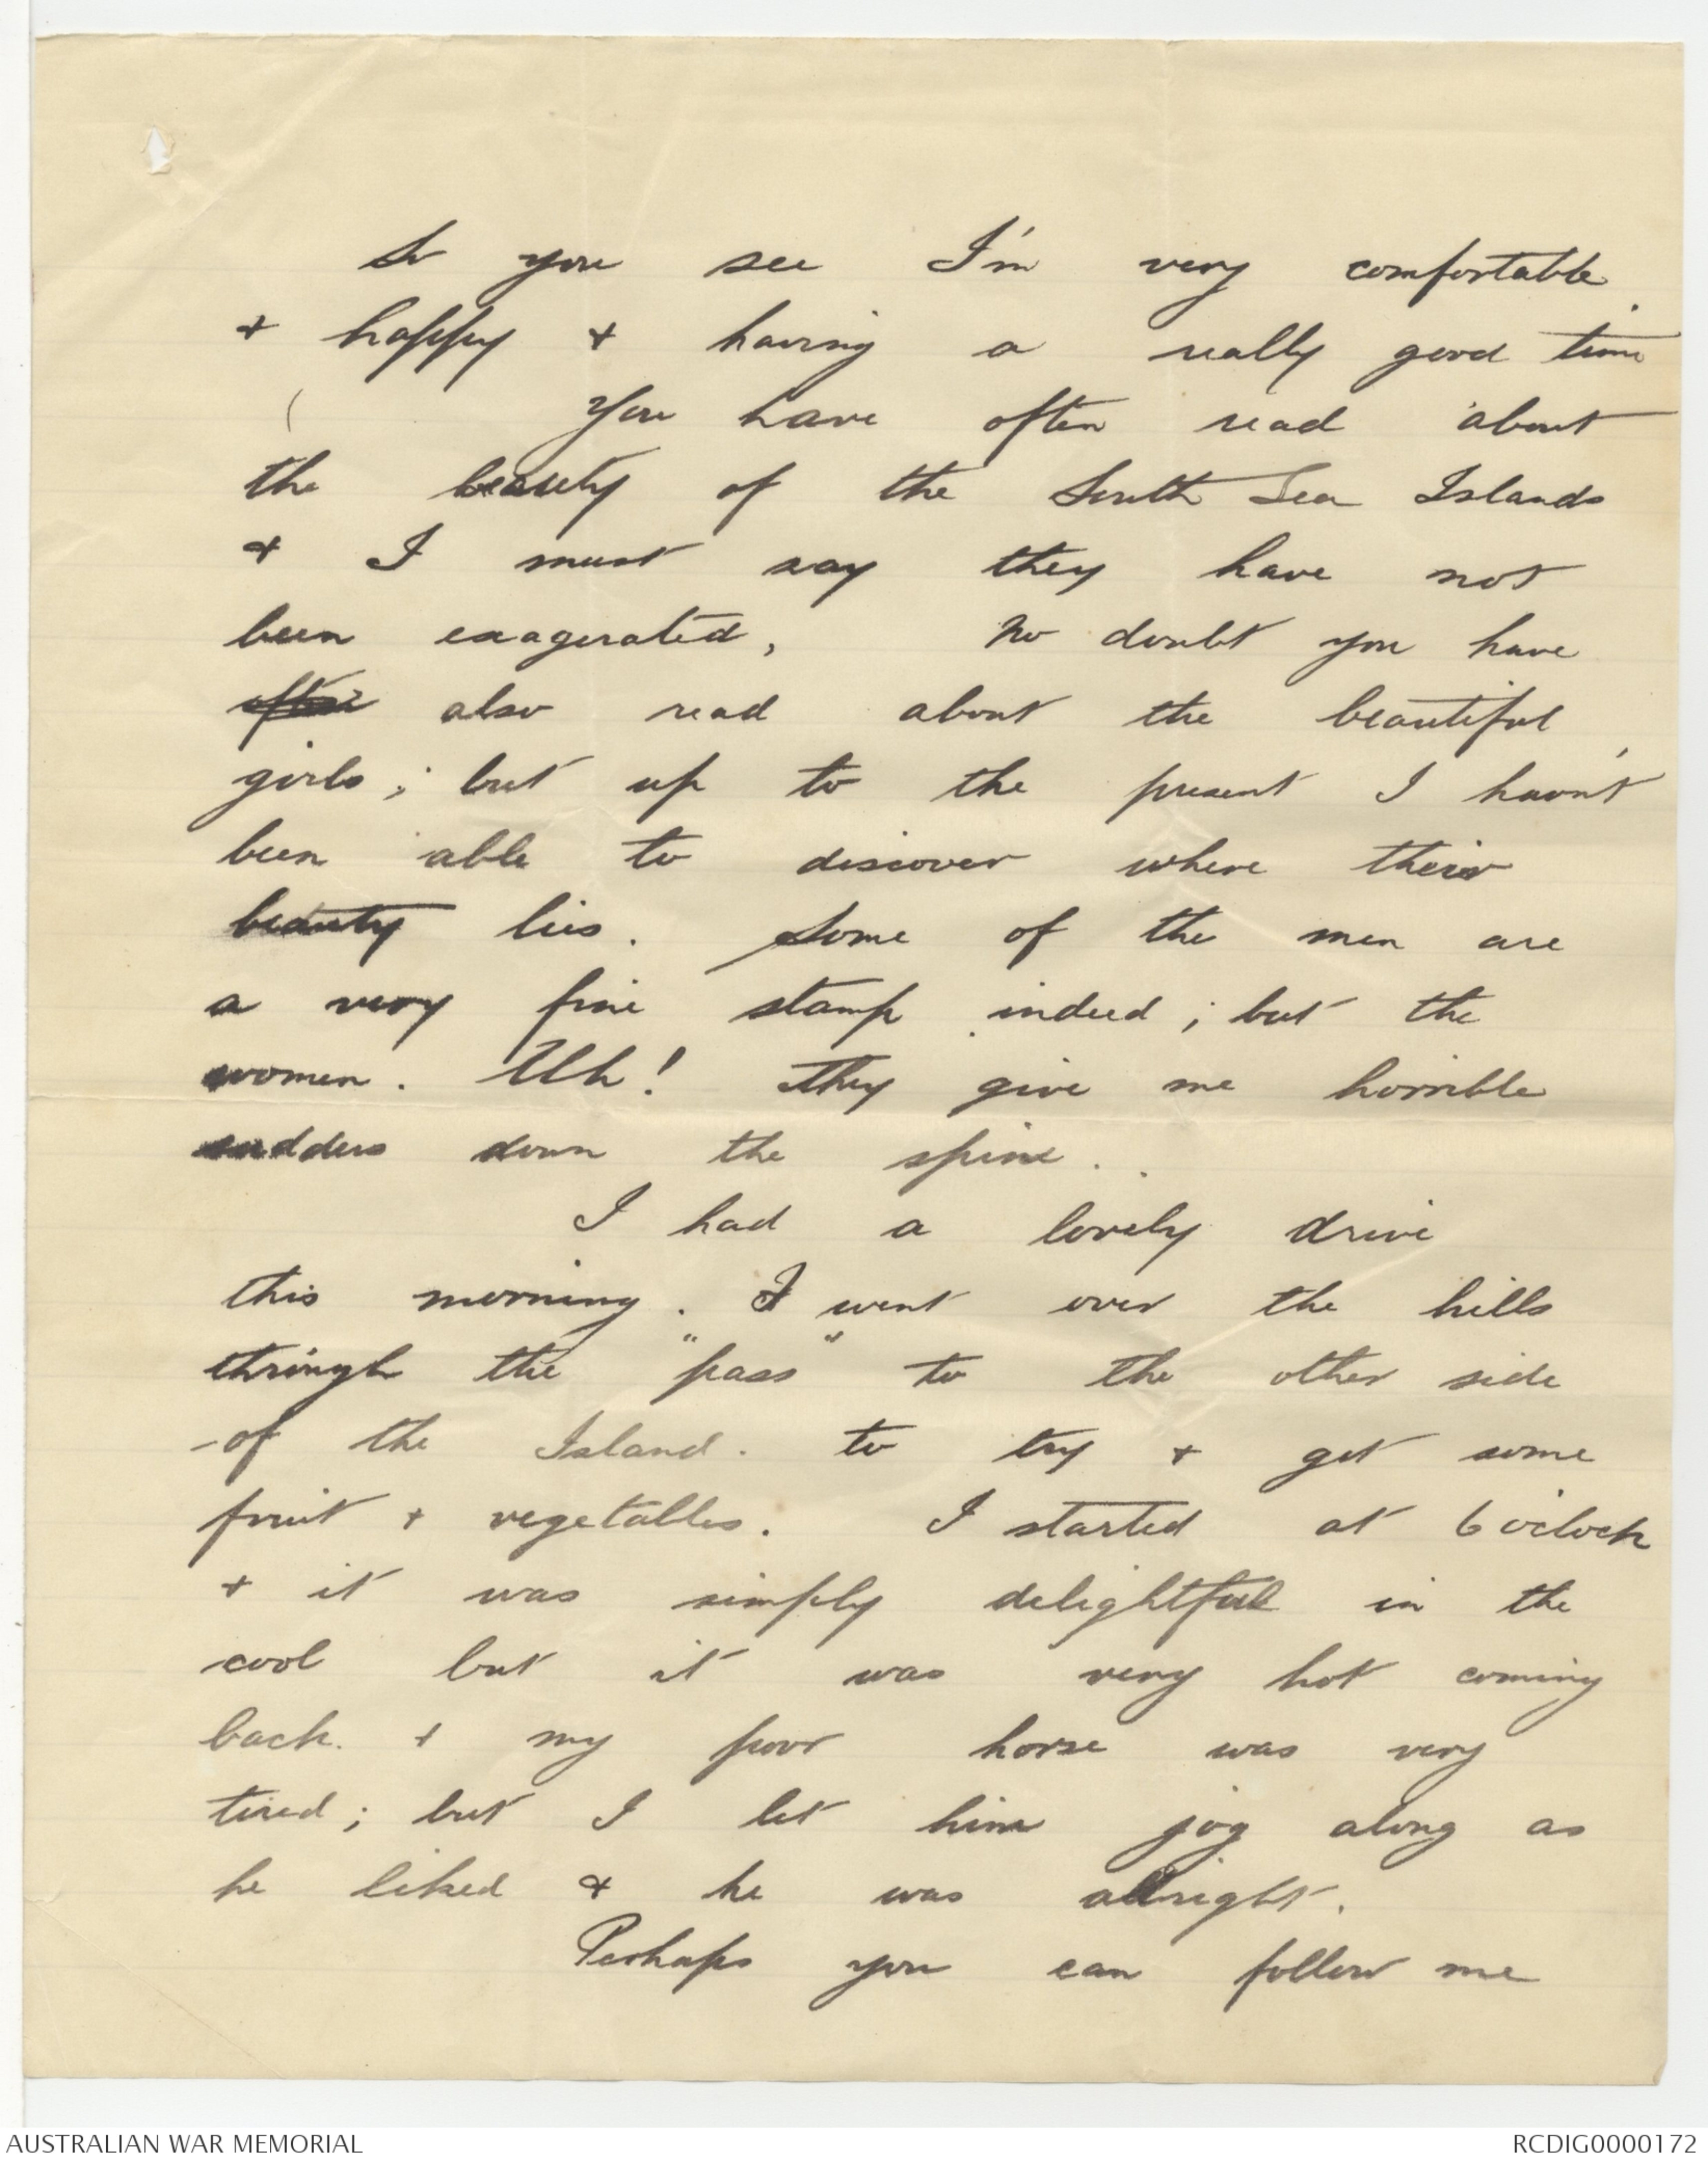 So you see I'm very comfortable
+ happy + having a really good time
You have often read about
the beauty of the South Sea Islands
+ I must say they have not
been exagerated, No doubt you have
often also read about the beautiful
girls; but up to the present I havn't
been able to discover where their
beauty lies. Some of the men are
a very fine stamp indeed; but the
women. Uh! They give me horrible
sudders down the spine.
I had a lovely drive
this morning. I went over the hills
through the "pass" to the other side
of the Island. to try + get some
fruit + vegetables. I started at 6 o'clock
+ it was simply delightful in the
cool but it was very hot coming
back. + my poor horse was very
tired; but I let him jog along as
he liked + he was allright.
Perhaps you can follow me
AUSTRALIAN WAR MEMORIAL RCDIG0000172